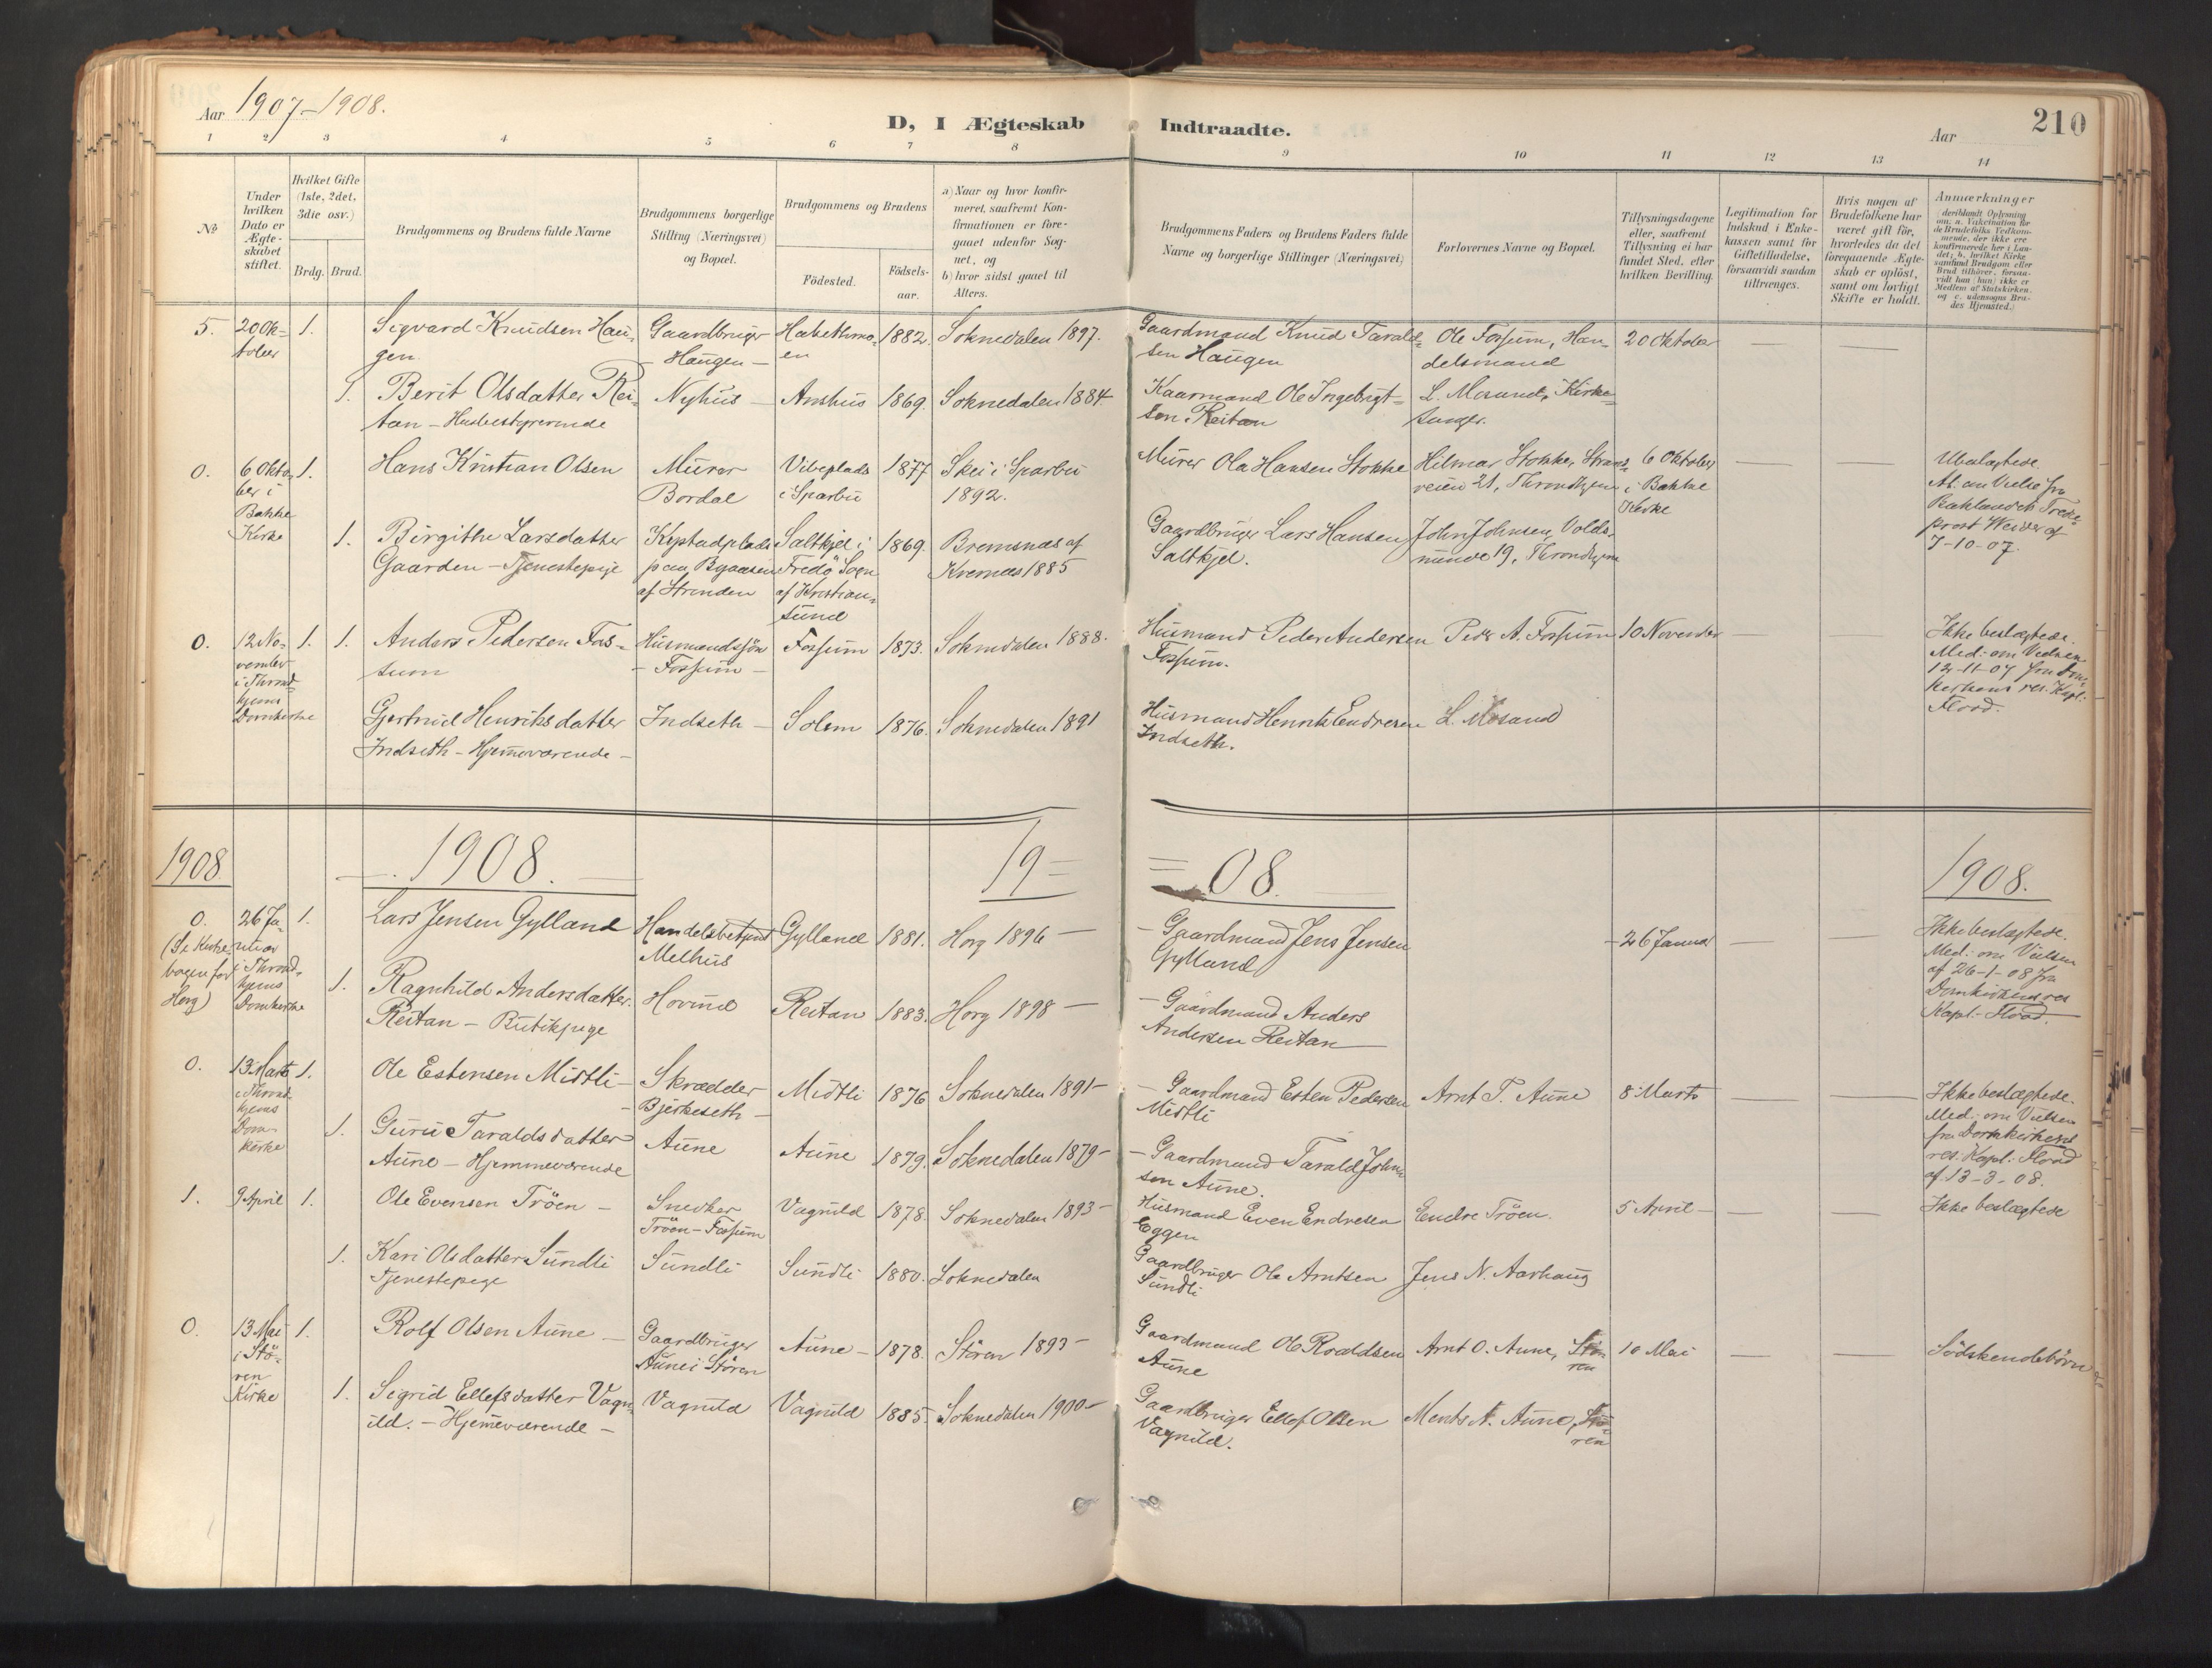 Aar 1907-1908.
D, I Ægteskab Indtraadte.
Aar
210
1 2 3 4 5 6 7 8 9 10 11 12 13 14
№
Under hvilken Dato er Ægte-skabet stiftet.
Hvilket Gifte (1ste, 2det, 3die osv.)
Brdg. Brud.
Brudgommens og Brudens fulde Navne
Brudgommens borgerlige Stilling (Næringsvei) og Bopæl.
Brudgommens og Brudens
Födested.
Födsels-aar.
a) Naar og hvor konfir-meret, saafremt Kon-firmationen er fore-gaaet udenfor Sog-net, og
b) hvor sidst gaaet til Alters.
Brudgommens Faders og Brudens Faders fulde Navne og borgerlige Stillinger (Næringsvei)
Forlovernes Navne og Bopæl.
Tillysningsdagene eller, saafremt Tillysning ei har fundet Sted, efter hvilken Bevilling.
Legitimation for Indskud i Enke-kassen samt for Giftetilladelse, forsaavidt saadan tiltrænges.
Hvis nogen af Brudefolkene har været gift för, hvorledes da det foregaaende Ægte-skab er oplöst, samt om lovligt Skifte er holdt.
Anmærkninger
(deriblandt Oplysning om: a. Vakcination for de Brudefolks Vedkom-mende, der ikke ere konfirmerede her i Lan-det; b. hvilket Kirke samfund Brudgom eller Brud tilhörer, forsaa-vidt han (hun) ikke er Medlem af Statskirken. og c. udensogns Bru-des Hjemsted.)
5. 20 Ok-tober 1. Sigvard Knudsen Hau-gen. Gaardbruger Haugen - 1882. Soknedalen 1897. Gaardmand Knud Tarald-sen Haugen Ole Fossum, Han-delsmand 20 Oktober
1. Berit Olsdatter Rei-tan - Husbestyrerinde Nyhus - Anshus 1869. Soknedalen 1884. Kaarmand Ole Ingebrigt-sen Reitan L. Mosand, Kirke-sanger.
0. 6 Okto-ber i Bakke Kirke 1. Hans Kristian Olsen Murer Bordal Vibeplads i Sparbu 1877 Skei i Sparbu 1892. Murer Ola Hansen Stokke Hilmar Stokke, Strand-veien 21, Throndhjem 6 Oktober i Bakke Kirke Ubeslægtede.
7-10-07.
1. Birgithe Larsdatter Gaarden - Tjenestepige paa Byaasen af Strinden Saltkjel i Fredö Sogn af Kristian-sund 1869. Bremsnæs af Kvernes 1885 Gaardbruger Lars Hansen Saltkjel. John Johnsen, Volds-minde 19, Throndhjem
0. 12 No-vember i Thrond-hjems Domkirke 1. 1. Anders Pedersen Fos-sum Husmandssön - Fossum - Fossum 1873. Soknedalen 1888. Husmand Peder Andersen Fossum. Peder A. Fossum 10 November Ikke beslægtede. Med: om Vielsen 12-11-07 fra Dom-kirkens res. Kapl: Flood.
Gjertrud Henriksdatter Indseth - Hjemmeværende - Indseth - Solem 1876. Soknedalen 1891 Husmand Henrik Endresen Indseth. L. Mosand
1908 1908. 19= =08. 1908.
0. (Se Kirke-bogen for Horg) 26 Ja-nuar i Thrond-hjems Domkirke 1. Lars Jensen Gylland Handelsbetjent Melhus Gylland 1881. Horg 1896 - - Gaardmand Jens Jensen Gylland - 26 Januar Ikke beslægtede. Med: om Vielsen af 26-1-08 fra Domkirkens res Kapl: Flood.
1. Ragnhild Andersdatter Reitan - Butikpige Hovind Reitan 1883. Horg 1898 - - Gaardmand Anders Andersen Reitan
0. 13 Marts i Thrond-hjems Dom-kirke 1. Ole Estensen Midtli - Skrædder Bjerkeseth - Midtli 1876 Soknedalen 1891 - - Gaardmand Esten Pedersen Midtli Arnt T. Aune 8 Marts Ikke beslægtede. Med: om Vielsen fra Domkirkens res: Kapl: Flood af 13-3-08.
1. Guru Taraldsdatter Aune - Hjemmeværende Aune Aune 1879. Soknedalen 1879 - - Gaardmand Tarald John-sen Aune.
1. 9 April 1. Ole Evensen Tröen - Snedker Tröen - Fossum Vagnild 1878. Soknedalen 1893 - Husmand Even Endresen Eggen Endre Tröen. 5 April - Ikke beslægtede
1. Kari Olsdatter Sundli Tjenestepige Sundli Sundli 1880. Soknedalen Gaardbruger Ole Arntsen Sundli Jens N. Aarhaug
0. 13 Mai i Stö-ren Kirke 1. Rolf Olsen Aune - Gaardbruger Aune i Stören Aune - 1878. Stören 1893 - Gaardmand Ole Roaldsen Aune Arnt O. Aune, Stö-ren 10 Mai Södskendebörn
1. Sigrid Ellefsdatter Vagn-ild. - Hjemmeværende - Vagnild Vagnild 1885. Soknedalen 1900 - Gaardbruger Ellef Olsen Vagnild. Ments N. Aune, Stö-ren